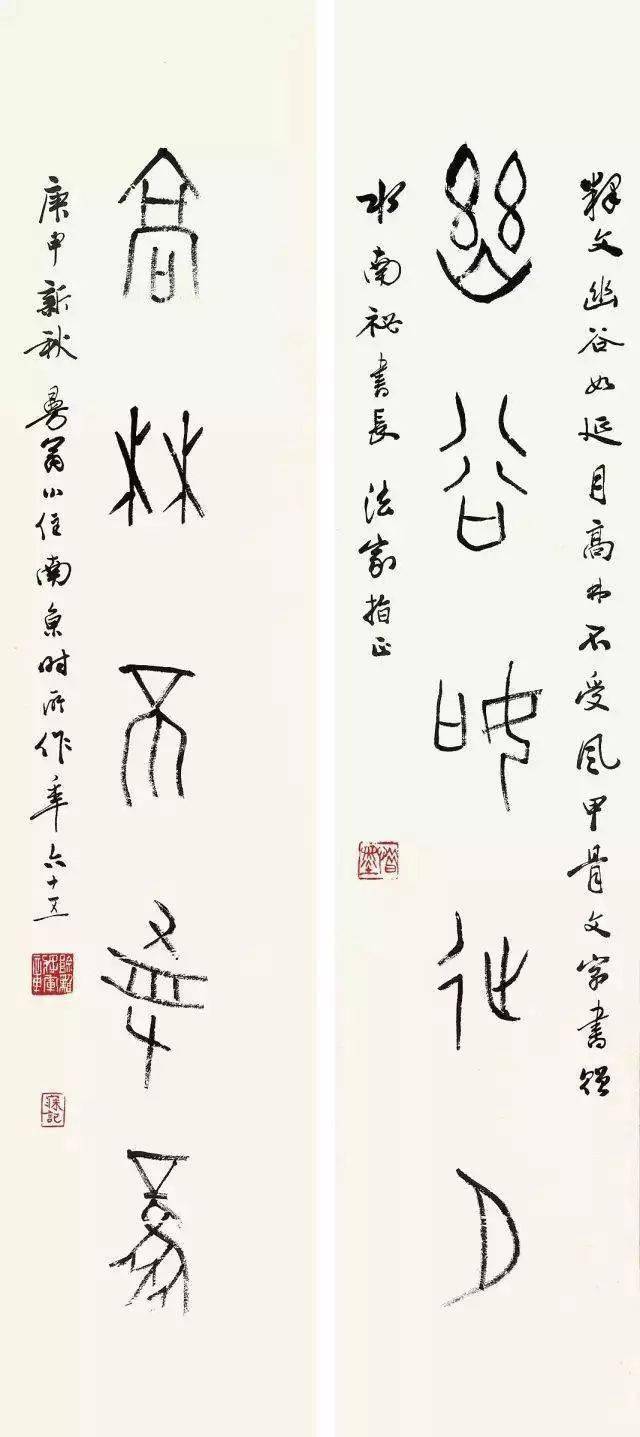 釋文幽谷如延月高林不受風甲骨文字書贈
幽谷如延月
水南祕書長 法家指正
高林不受風
庚申新秋 曼翁小住南京時所作年六十五